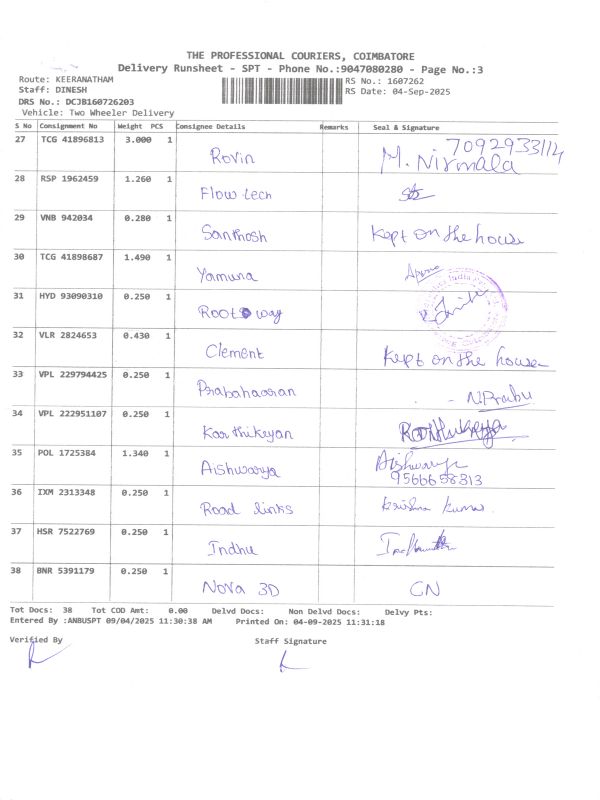 THE PROFESSIONAL COURIERS, COIMBATORE
Delivery Runsheet - SPT - Phone No.:9047080280 - Page No.:3
Route: KEERANATHAM
RS No.: 1607262
Staff: DINESH
RS Date: 04-Sep-2025
DRS No.: DCJB160726203
Vehicle: Two Wheeler Delivery
S No Consignment No Weight PCS Consignee Details Remarks Seal & Signature
27 TCG 41896813 3.000 1 Rovin M. Nirmala 7092933114
28 RSP 1962459 1.260 1 Flow tech
29 VNB 942034 0.280 1 Santhosh Kept on the house
30 TCG 41898687 1.490 1 Yamuna
31 HYD 93090310 0.250 1 Roots way
32 VLR 2824653 0.430 1 Clement Kept on the house
33 VPL 229794425 0.250 1 Prabahaaran - N.Prabu
34 VPL 222951107 0.250 1 Karthikeyan Karthikeya
35 POL 1725384 1.340 1 Aishwarya Aishwarya
9566658313
36 IXM 2313348 0.250 1 Road links Krishna Kumar.
37 HSR 7522769 0.250 1 Indhu
38 BNR 5391179 0.250 1 Nova 3D CN
Tot Docs: 38 Tot COD Amt: 0.00 Delvd Docs: Non Delvd Docs: Delvy Pts:
Entered By :ANBUSPT 09/04/2025 11:30:38 AM Printed On: 04-09-2025 11:31:18
Verified By Staff Signature